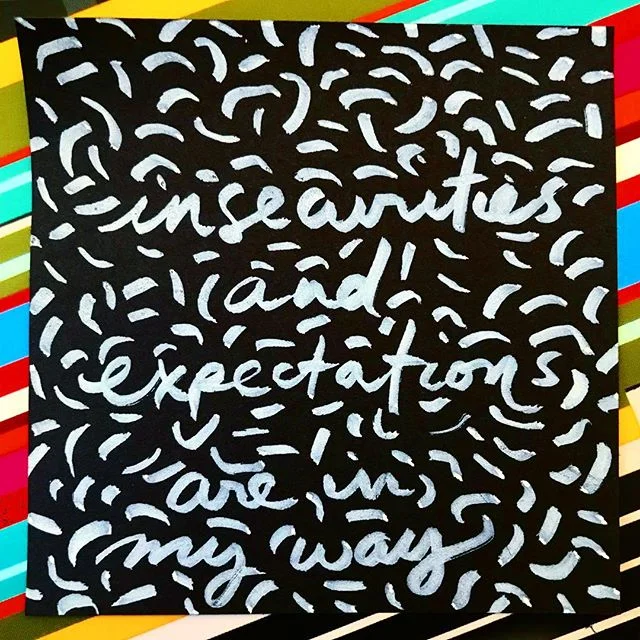 insecurities
and
expectations
are in
my way